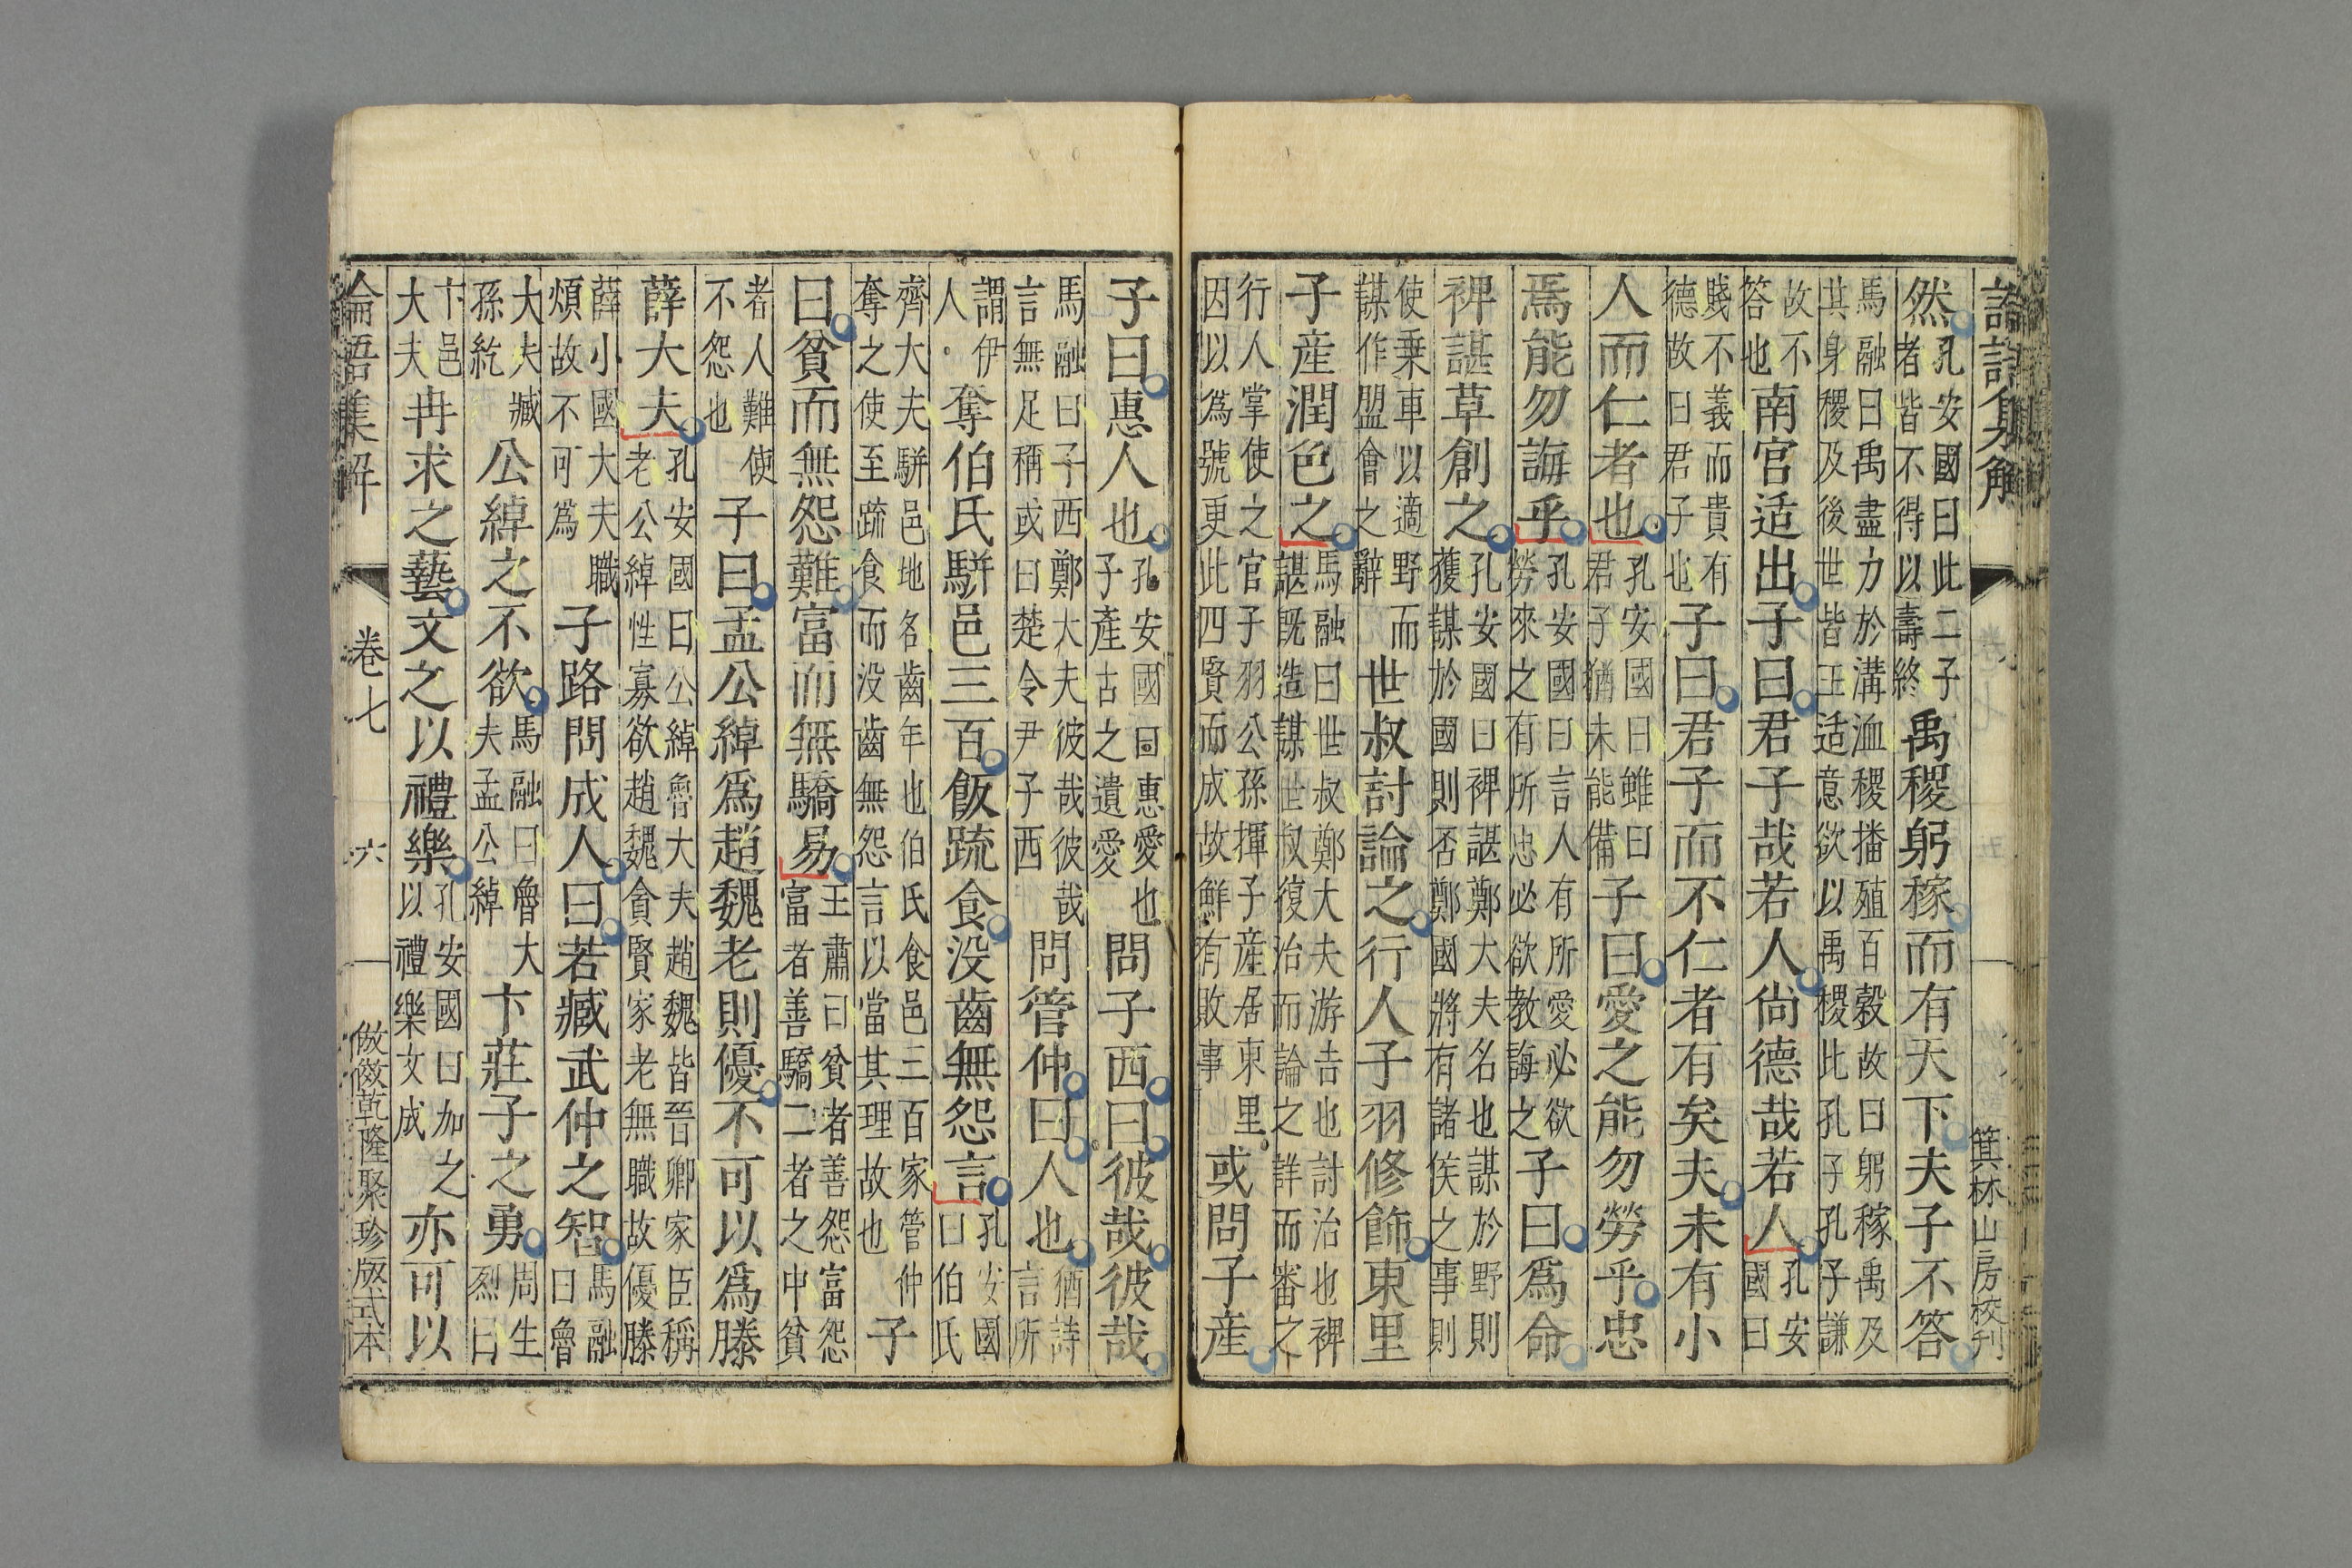 論語集解 箕林山房校刊
然孔安國曰此二子者皆不得以壽終禹稷躬稼而有天下夫子不答
馬融曰禹盡力於溝洫稷播殖百穀故曰躬稼禹及其身稷及後世皆王适意欲以禹稷此孔子孔子謙
故不答也南宫适出子曰君子哉若人尚德哉若人孔安國曰
賤不義而貴有德故曰君子也子曰君子而不仁者有矣夫未有小
人而仁者也孔安國曰雖曰君子猶未能備子曰愛之能勿勞乎忠
焉能勿誨乎孔安國曰言人有所愛必欲勞來之有所忠必欲教誨之子曰爲命
裨諶草創之孔安國曰裨諶鄭大夫名也謀於野則獲謀於國則否鄭國將有諸侯之事則
使乗車以適野而謀作盟會之辭世叔討論之行人子羽修飾東里
子産潤色之馬融曰世叔鄭大夫游吉也討治也裨諶既造謀世叔復治而論之詳而審之
行人掌使之官子羽公孫揮子産居東里因以為號更此四賢而成故鮮有敗事或問子産
子曰惠人也孔安國曰惠愛也子産古之遺愛問子西曰彼哉彼哉
馬融曰子西鄭大夫彼哉彼哉言無足稱或曰楚令尹子西問管仲曰人也猶詩言所
謂伊人奪伯氏駢邑三百飯疏食没齒無怨言孔安國曰伯氏
齊大夫駢邑地名齒年也伯氏食邑三百家管仲奪之使至疏食而没齒無怨言以當其理故也子
曰貧而無怨難富而無驕易王肅曰貧者善怨富怨富者善驕二者之中貧
者人難使不怨也子曰孟公綽爲趙魏老則優不可以爲滕
薛大夫孔安國曰公綽魯大夫趙魏皆晉卿家臣稱老公綽性寡欲趙魏貪賢家老無職故優滕
薛小國大夫職煩故不可爲子路問成人曰若臧武仲之智馬融曰魯
大夫臧孫紇公綽之不欲馬融曰魯大夫孟公綽卞莊子之勇周生烈曰
卞邑大夫冉求之藝文之以禮樂孔安國曰加之以禮樂文成亦可以
論語集解 卷七 六 倣傚乾隆聚珍版式本